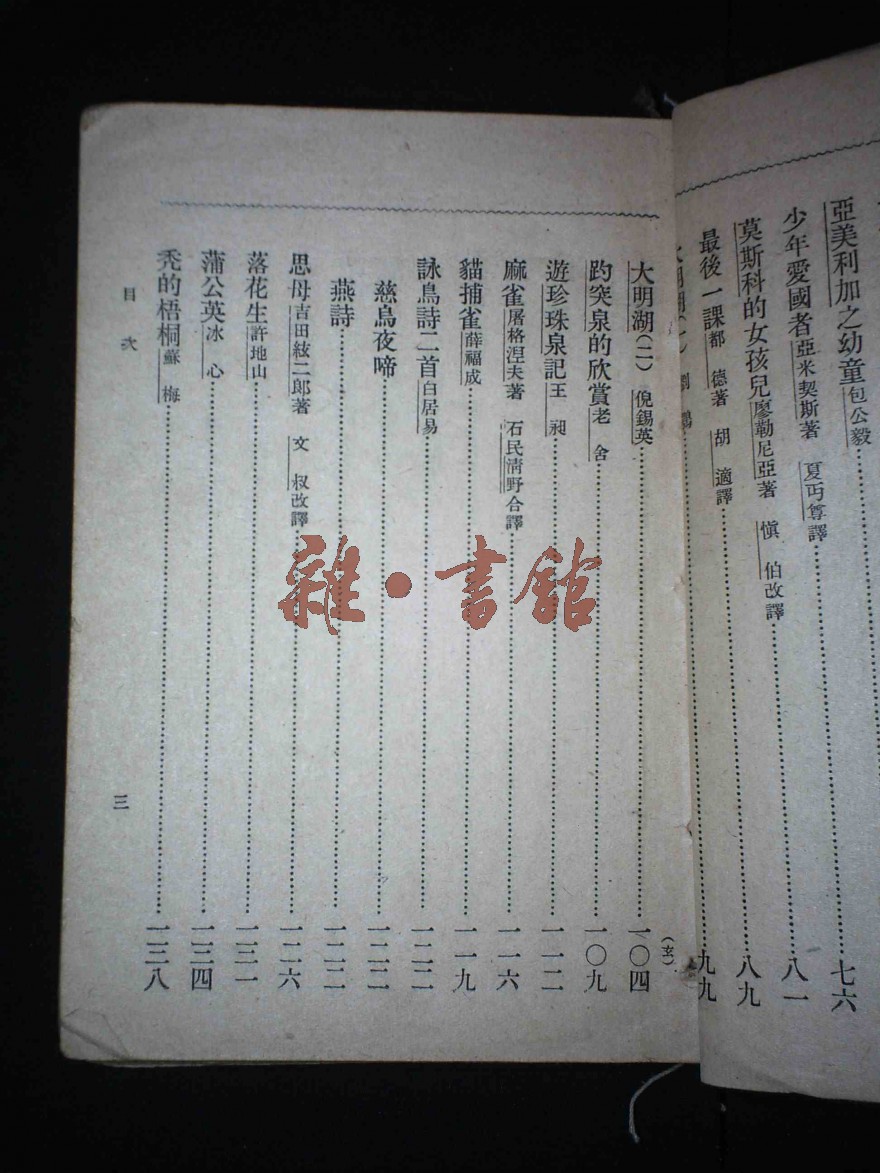 亞美利加之幼童包公毅……七六
少年愛國者亞米契斯著 夏丏尊譯……八一
莫斯科的女孩兒廖勒尼亞著 愼伯改譯……八九
最後一課都德著 胡適譯……九九
大明湖(二) 倪錫英……一〇四
趵突泉的欣賞老舍……一〇九
遊珍珠泉記王昶……一一二
麻雀屠格涅夫著 石民淸野合譯……一一六
貓捕雀薛福成……一一九
詠鳥詩二首白居易……一二二
慈烏夜啼……一二二
燕詩……一二二
思母吉田絃二郎著 文叔改譯……一二六
落花生許地山……一三一
蒲公英冰心……一三四
禿的梧桐蘇梅……一三八
目次
三
(玄)
雜·書館